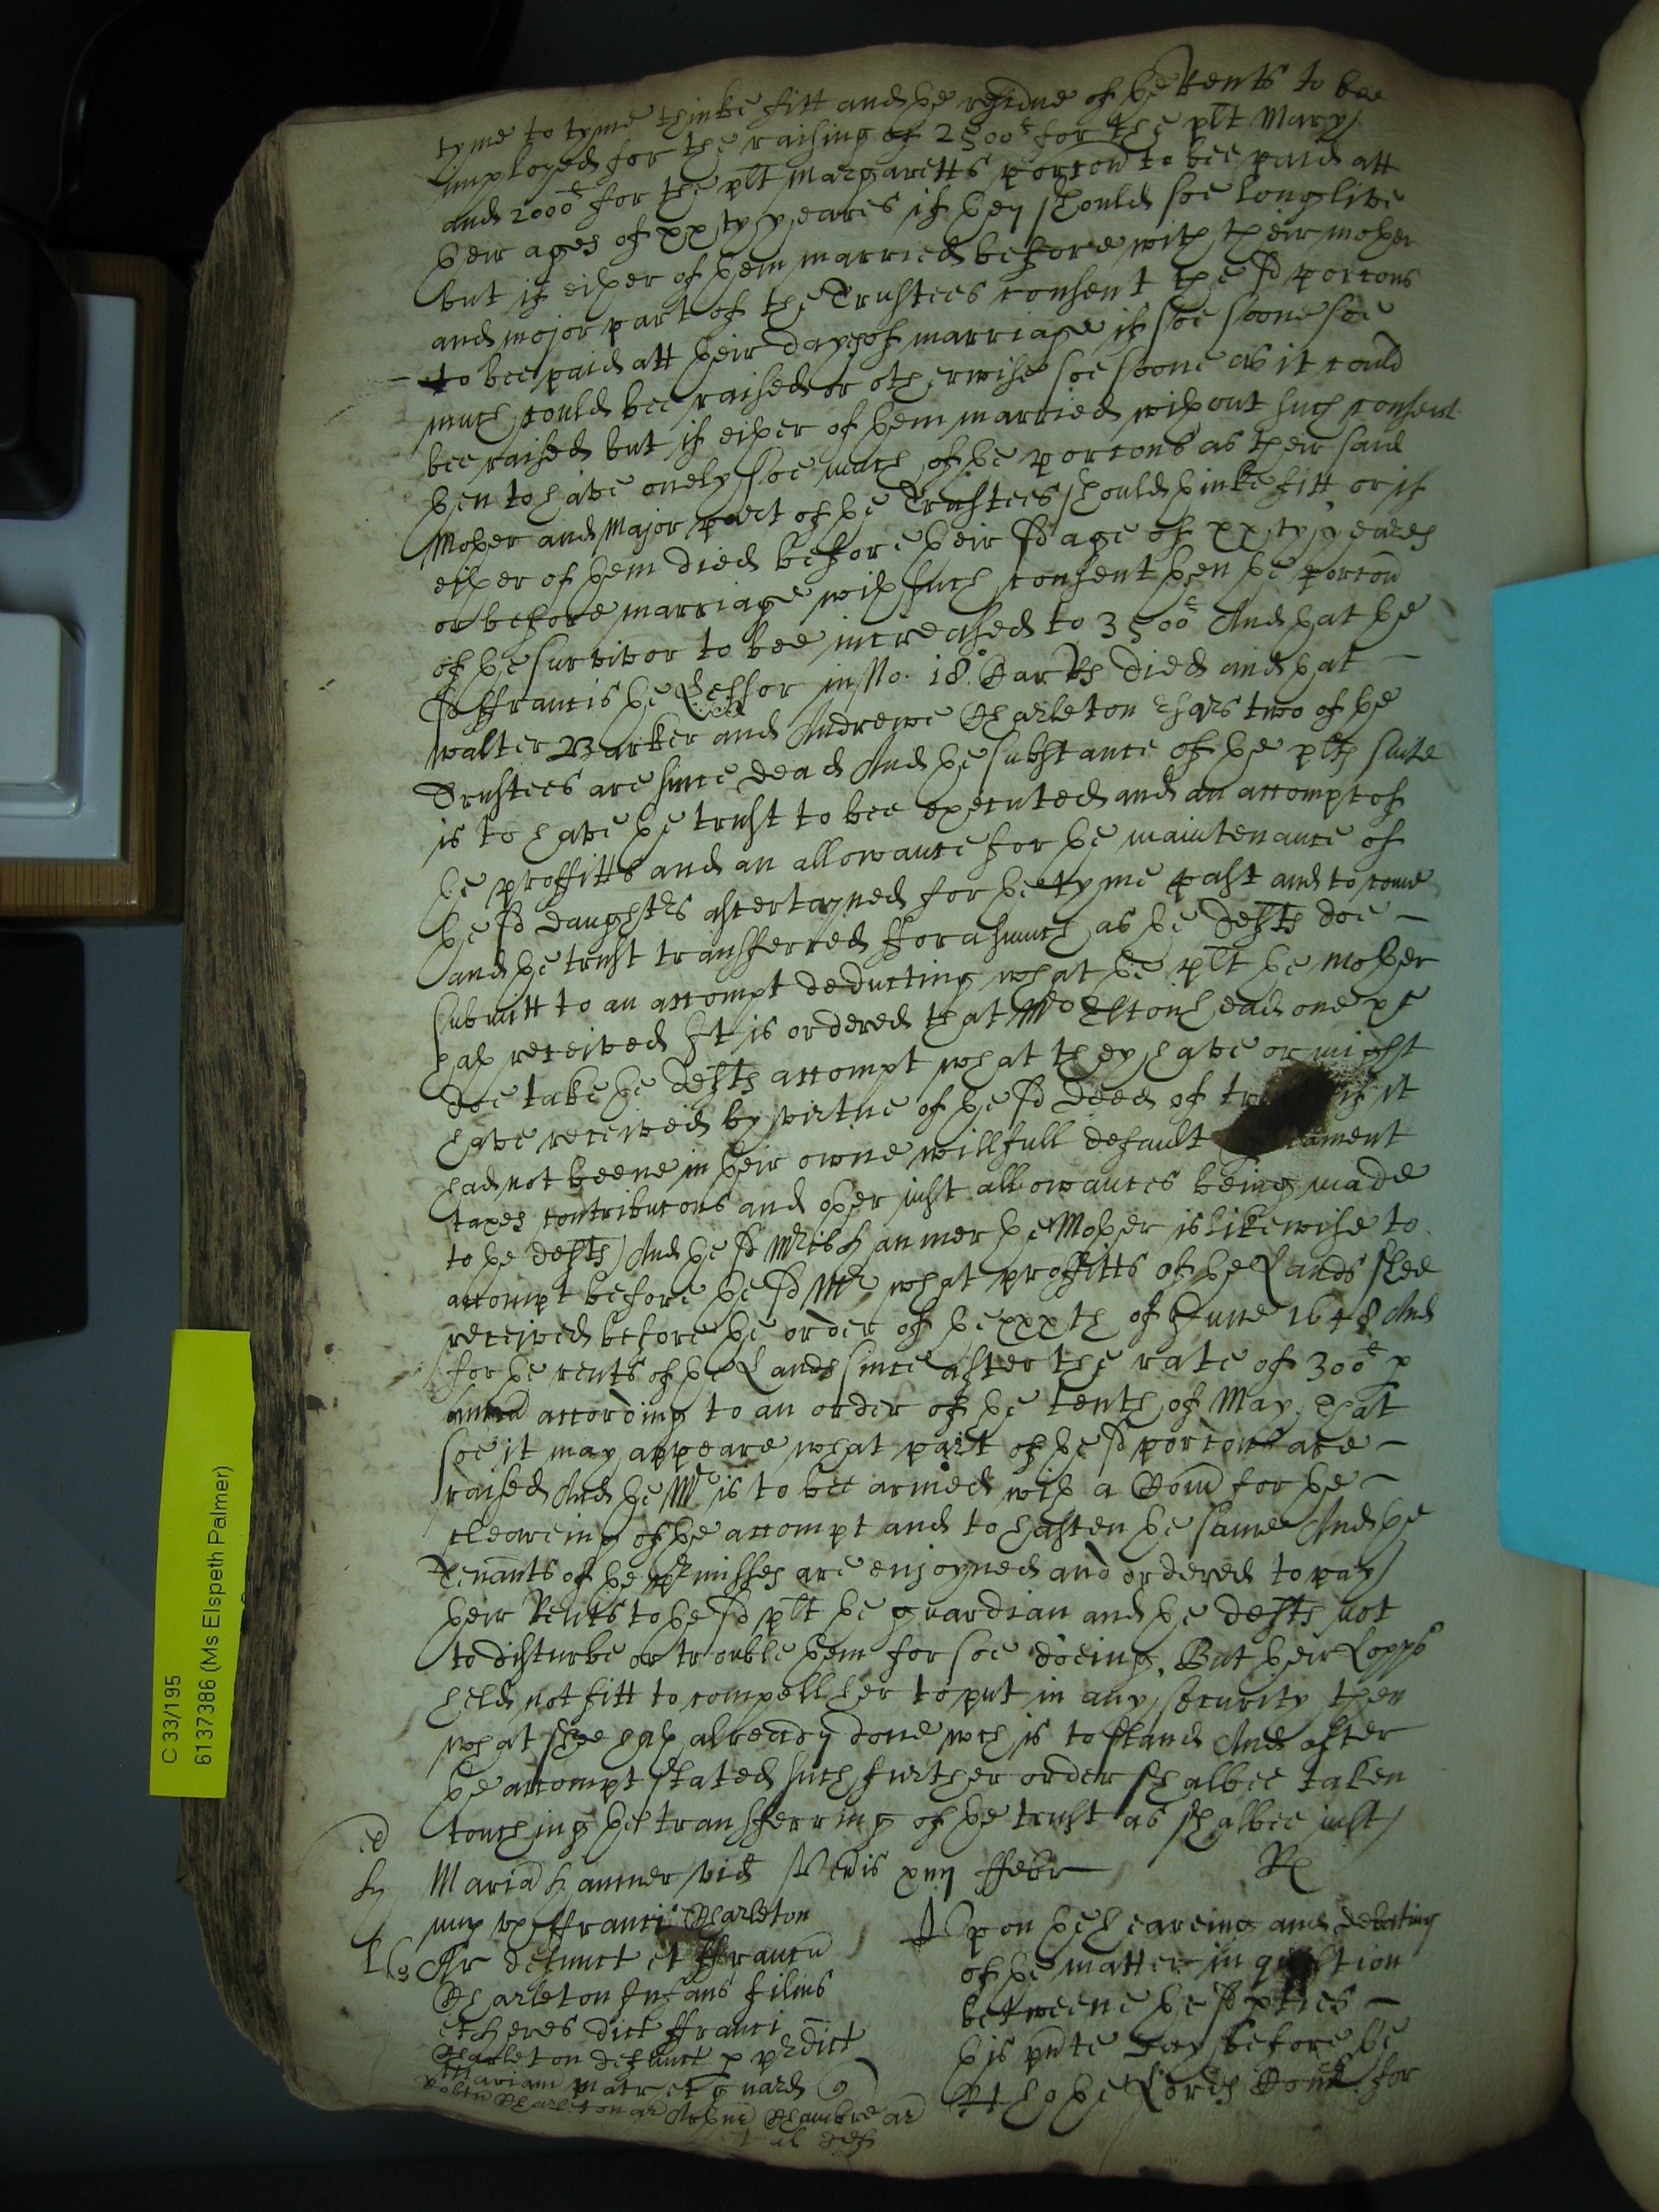 tyme to tyme thinke fitt and the residue of the Rents to bee
imployed for the raising of 2500£ for the plt Mary
and 2000£ for the plt Margaretts porcon to bee paid att
their ages of xxty yeares if they should soe long live
but if either of them married before with their mother
and major part of the Trustees consent the sd porcons
to bee paid att their dayes of marriage if soe soone soe
much could bee raised or otherwise soe soone as it could
bee raised but if either of them married without such consent
then to have onely soe much of the porcons as their said
Mother and Major part of the Trustees should thinke fitt or if
either of them died before their sd age of xxty yeares
or before marriage with such consent then the porcon
of the survivor to bee increased to 3500£ And that the
sd ffrancis the Lessor in No. 18° Car Rs died and that
walter Barker and Andrewe Charleton Esqrs two of the
Trustees are since dead And the substance of the plts suite
is to have the trust to bee executed and an accompt of
the proffitts and an allowance for the maintenance of
the sd daughters ascertayned for the tyme past and to come
and the trust transferred fforasmuch as the defts doe
submitt to an accompt deducting what the plt the mother
hath received It is ordered that Mr Eltonhead one &c
doe take the defts accompt what they have or might
have received by virtue of the sd deed of if it
had not beene in their owne willfull default
taxes contribucons and other iust allowances being made
to the defts And the sd Mris Hanmer the Mother is likewise to
accompt before the sd Mr what proffitts of the Lands shee
received before the order of the xxxth of June 1648 And
for the rents of the Lands since after the rate of 300£ p
annu according to an order of the tenth of May. That
soe it may appeare what part of the sd porcons are
raised And the Mr is to bee armed with a Com for the
cleareing of the accompt and to hasten the same And the
Tenants of the pmisses are enjoyned and ordered to pay
their Rents to the sd plt the guardian and the defts not
to disturbe or trouble them for soe doeing. But their Lopps
held not fitt to compell her to put in any security then
what shee hath already done wch is to stand And after
the accompt stated such further order shalbee taken
touching the transferring of the trust as shalbee iust
Maria Hanmer vid
nup ux ffranci Charleton
Ar defunct et ffrancu
Charleton Infans filius
et heres dict ffranci
Charleton defunct p prdict
Mariam matr et guard
Charleton ar Chambre ar
et al deft
Veñis xiiij ffebr
Upon the heareing and debating
of the matter in question
betweene the sd pties
this pnte day before the
Rt ho the Lords Com for
C 33/195
6137386 (Ms Elspeth Palmer)